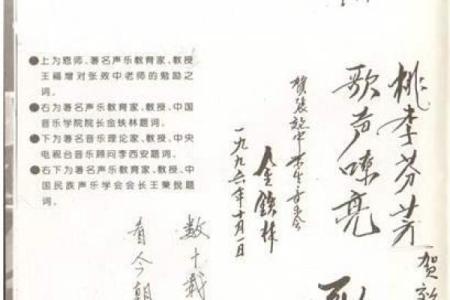 ●上为恩师、著名声乐教育家、教授
王福增对张效中老师的勉励之
词。
●右为著名声乐教育家、教授、中国
音乐学院院长金铁林题词。
●下为著名音乐理论家、教授、中央
电视台音乐顾问李西安题词。
●右下为著名声乐教育家、教授、中
国民族声乐学会会长王秉锐题
词。
桃李芬芳
歌声嘹亮
贺张效中学生音乐会
金铁林
一九九六年十月一日
贺
数十载
看今朝